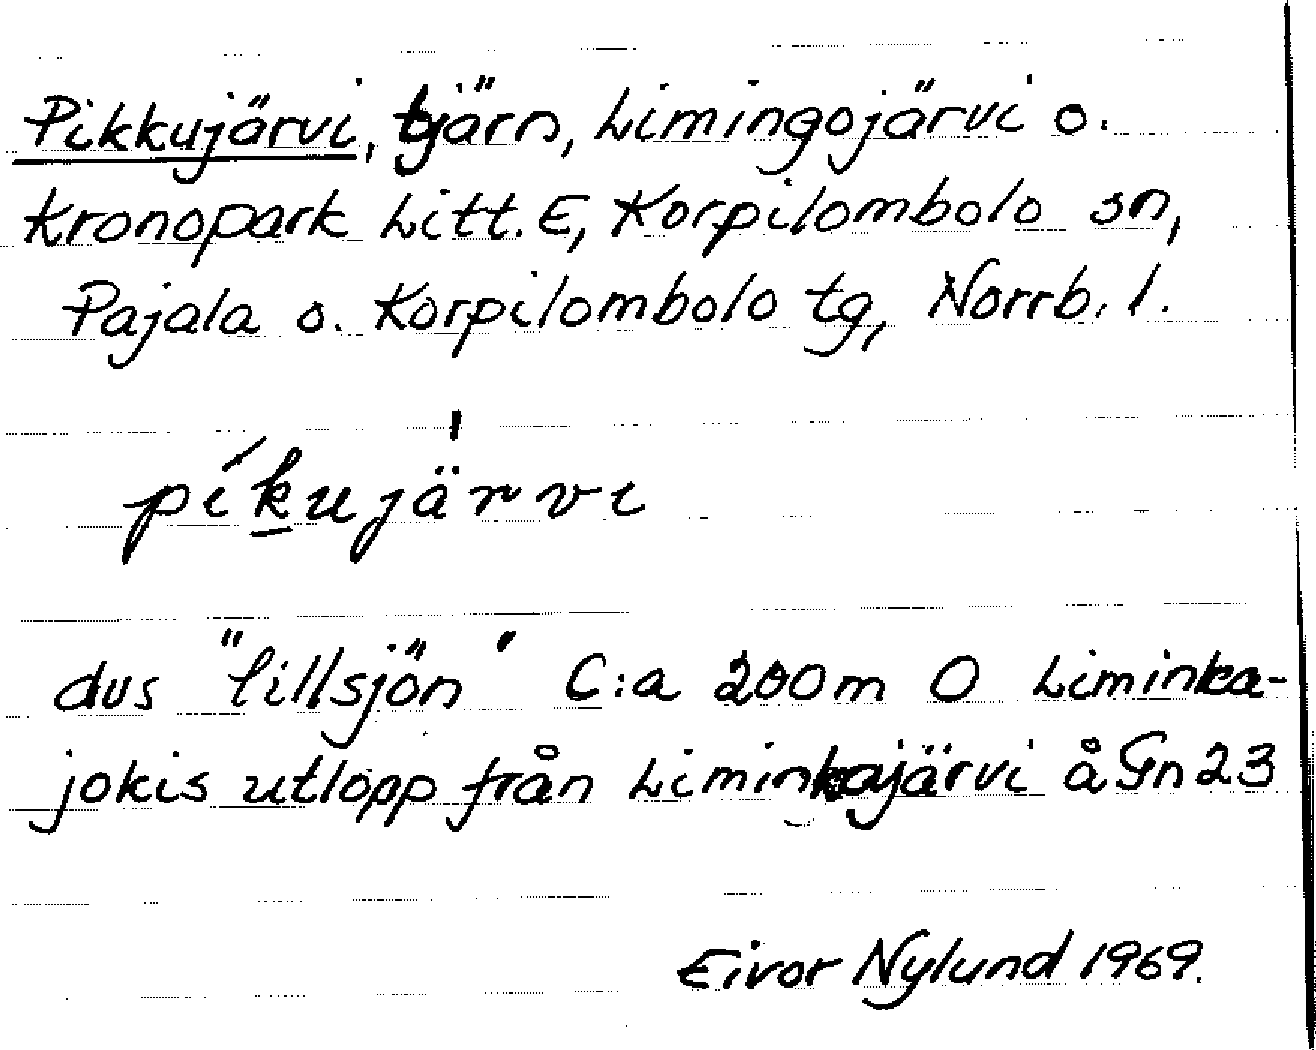 Pikkujärvi, tjärn, Limingojärvi o.
kronopark Litt. E, Korpilombolo sn,
Pajala o. Korpilombolo tg, Norrb. l.
píkujärvi
dvs "lillsjön" C:a 200m O Liminka-
jokis utlopp från Liminkajärvi å Gn 23
Eivor Nylund 1969.